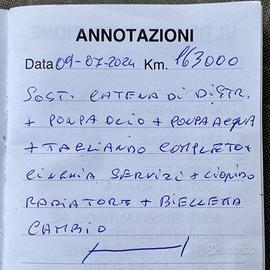 ANNOTAZIONI
Data 09-07-2024 Km. 163000
SOST. CATENA DI DISTR.
+ POMPA OLIO + POMPA ACQUA
+ TAGLIANDO COMPLETO +
CINGHIA SERVIZI + LIQUIDO
RADIATORE + BIELLETTA
CAMBIO